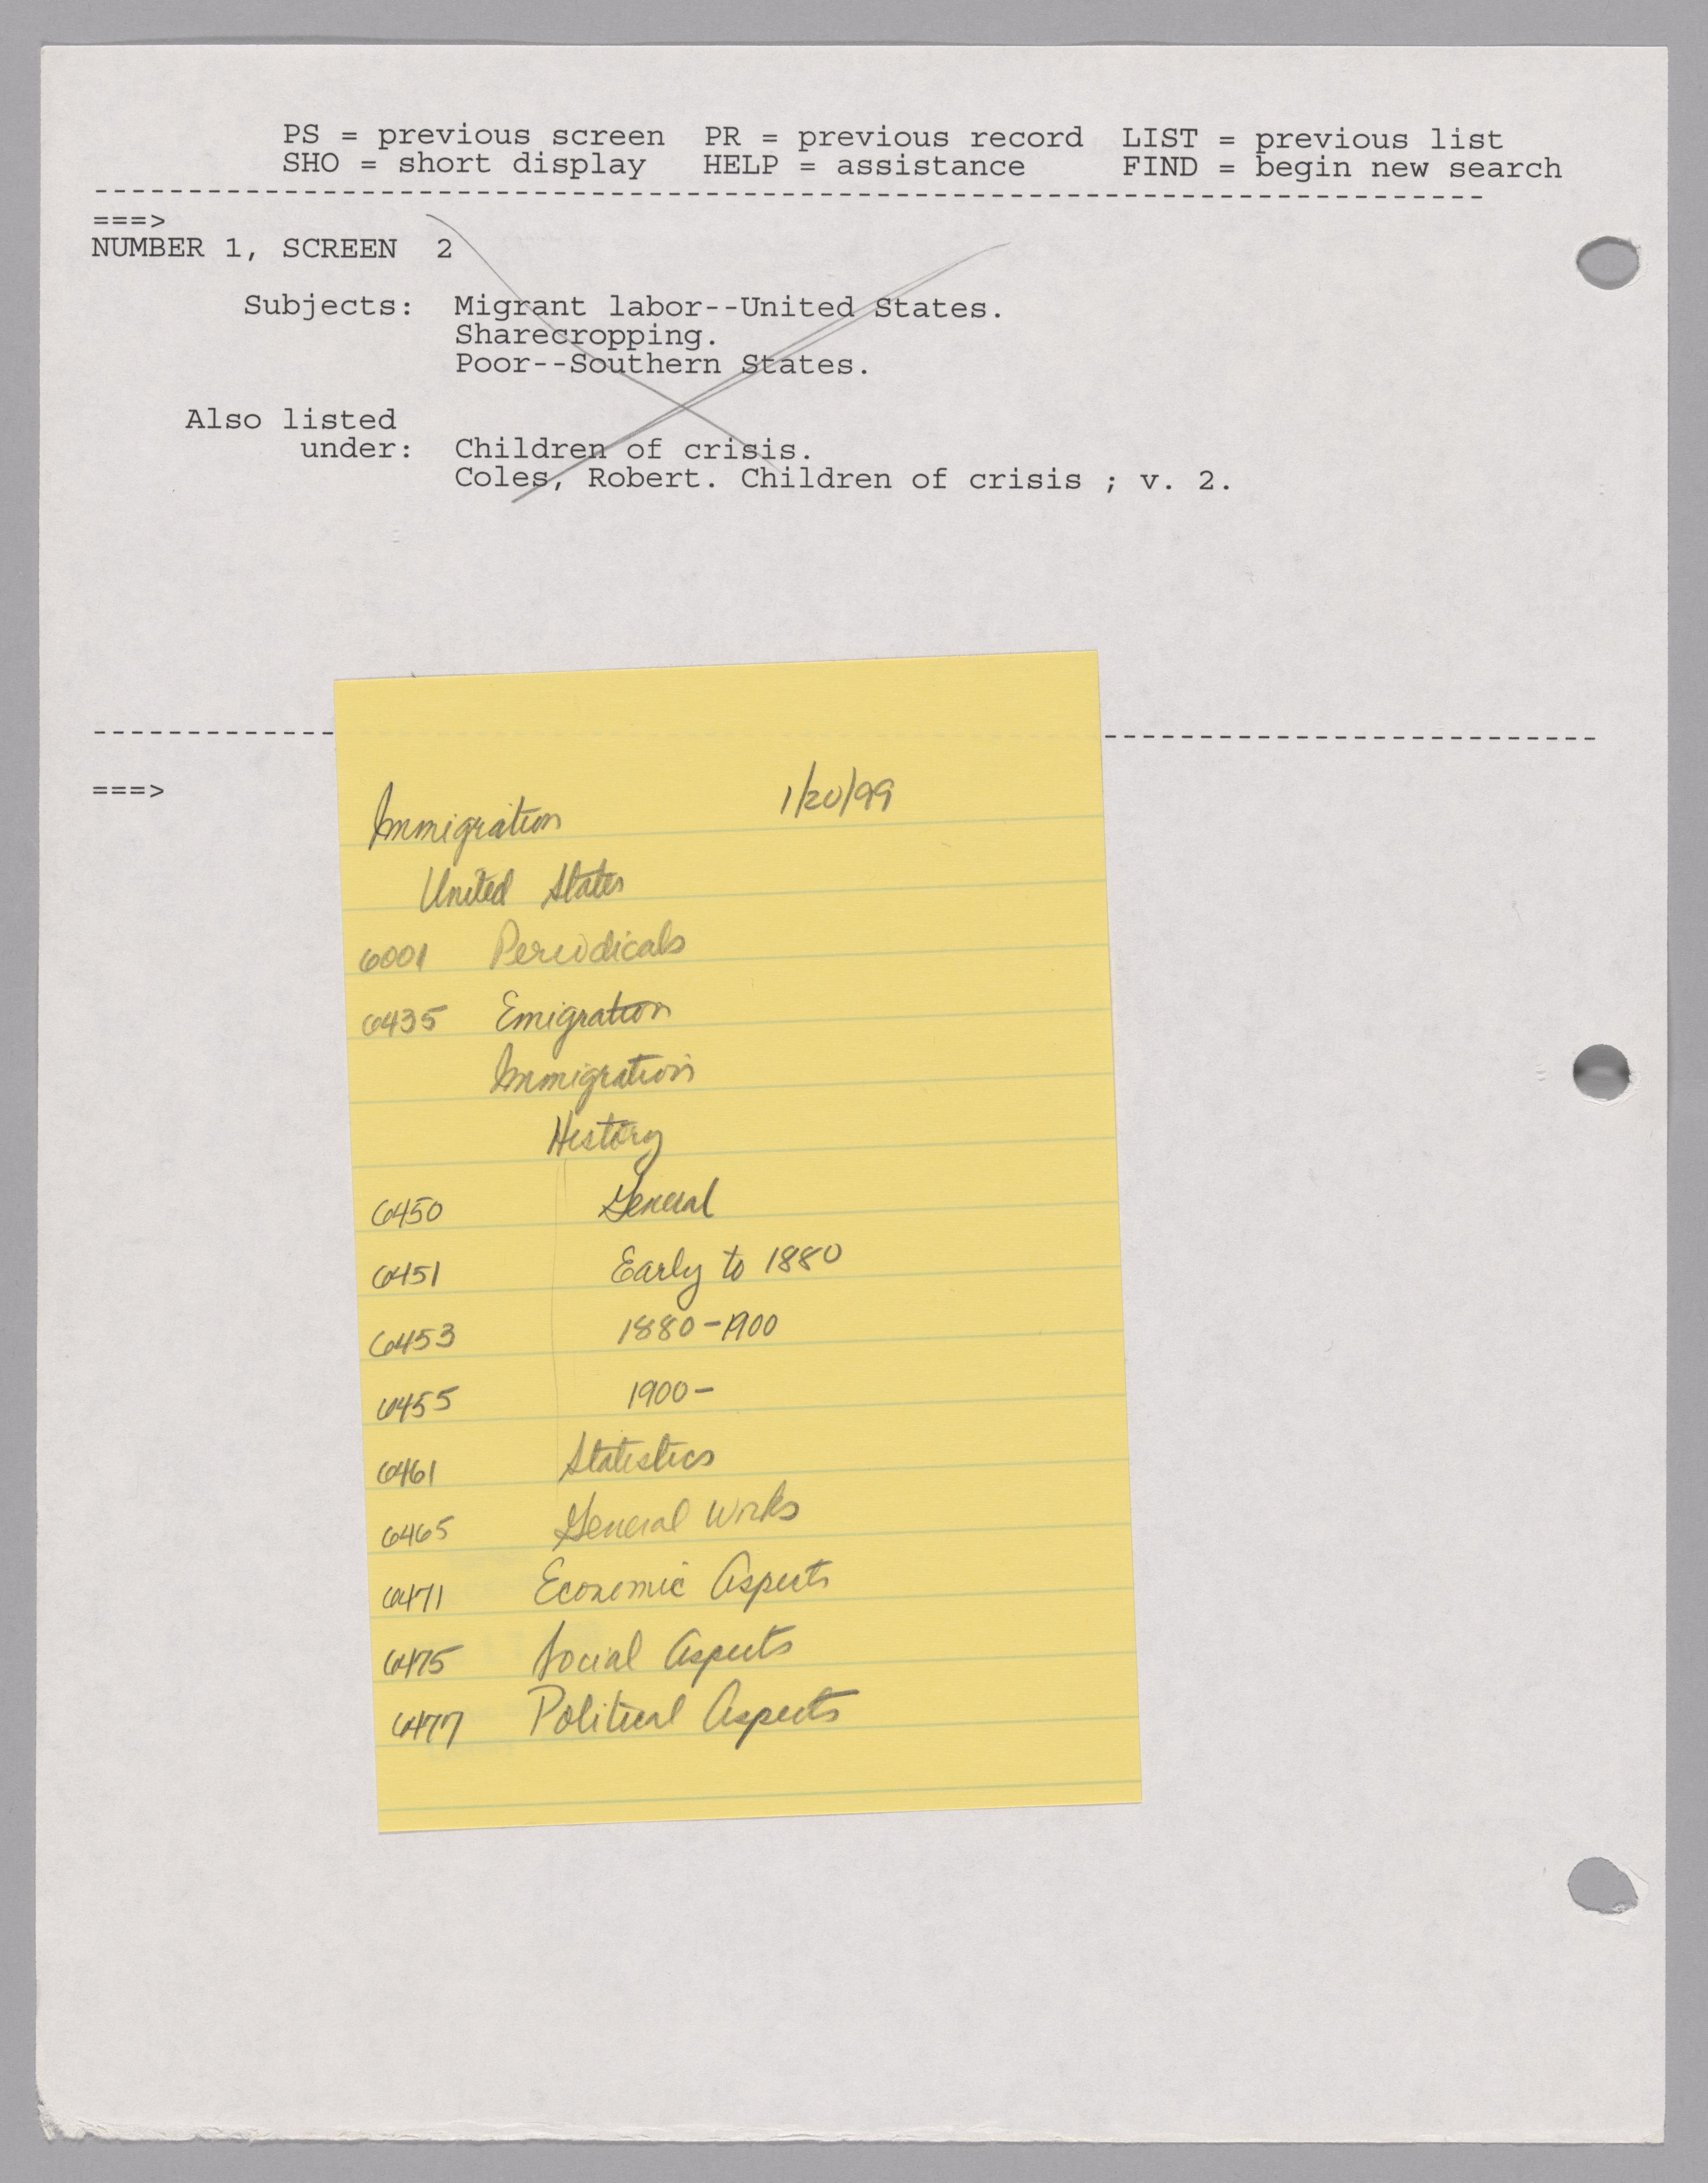 PS = previous screen PR = previous record LIST = previous list
SHO = short display HELP = assistance FIND = begin new search
--------------------------------------------------------------------------
===>
NUMBER 1, SCREEN 2
Subjects: Migrant labor--United States.
Sharecropping.
Poor--Southern States.
Also listed
under: Children of crisis.
Coles, Robert. Children of crisis ; v. 2.
--------------------------------------------------------------------------
===>
Immigration 1/20/99
United States
6001 Periodicals
6435 Emigration
Immigration
History
6450 General
6451 Early to 1880
6453 1880-1900
6455 1900-
6461 Statistics
6465 General Works
6471 Economic Aspects
6475 Social Aspects
6477 Political Aspects